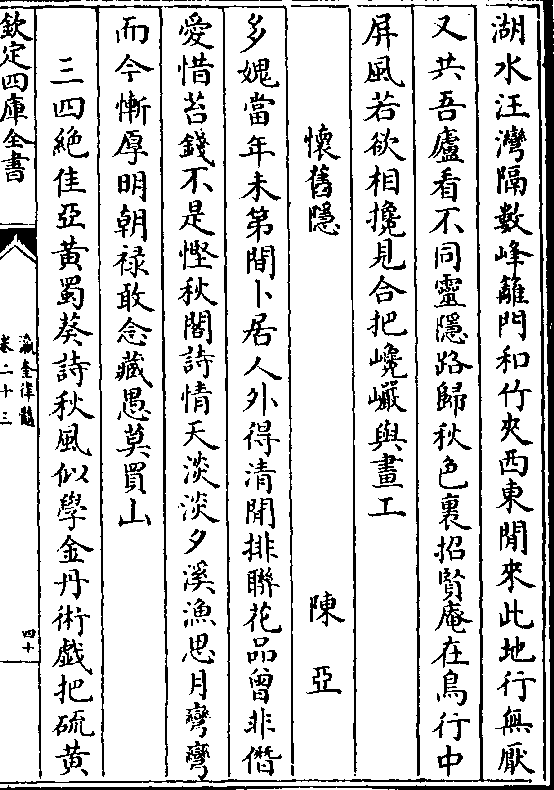 湖水汪灣隔數峰籬門和竹夾西東閒來此地行無厭
又共吾廬看不同靈隱路歸秋色裏招賢庵在鳥行中
屏風若欲相攙見合把巉巗與畫工
懷舊隱 陳亞
多媿當年未第間卜居人外得清閒排聯花品曾非僭
愛惜苔錢不是慳秋閣詩情天淡淡夕溪漁思月彎彎
而今慚厚明朝禄敢念藏愚莫買山
三四絶佳亞黃蜀葵詩秋風似學金丹術戲把硫黃
欽定四庫全書
瀛奎律髓
卷二十三
四十